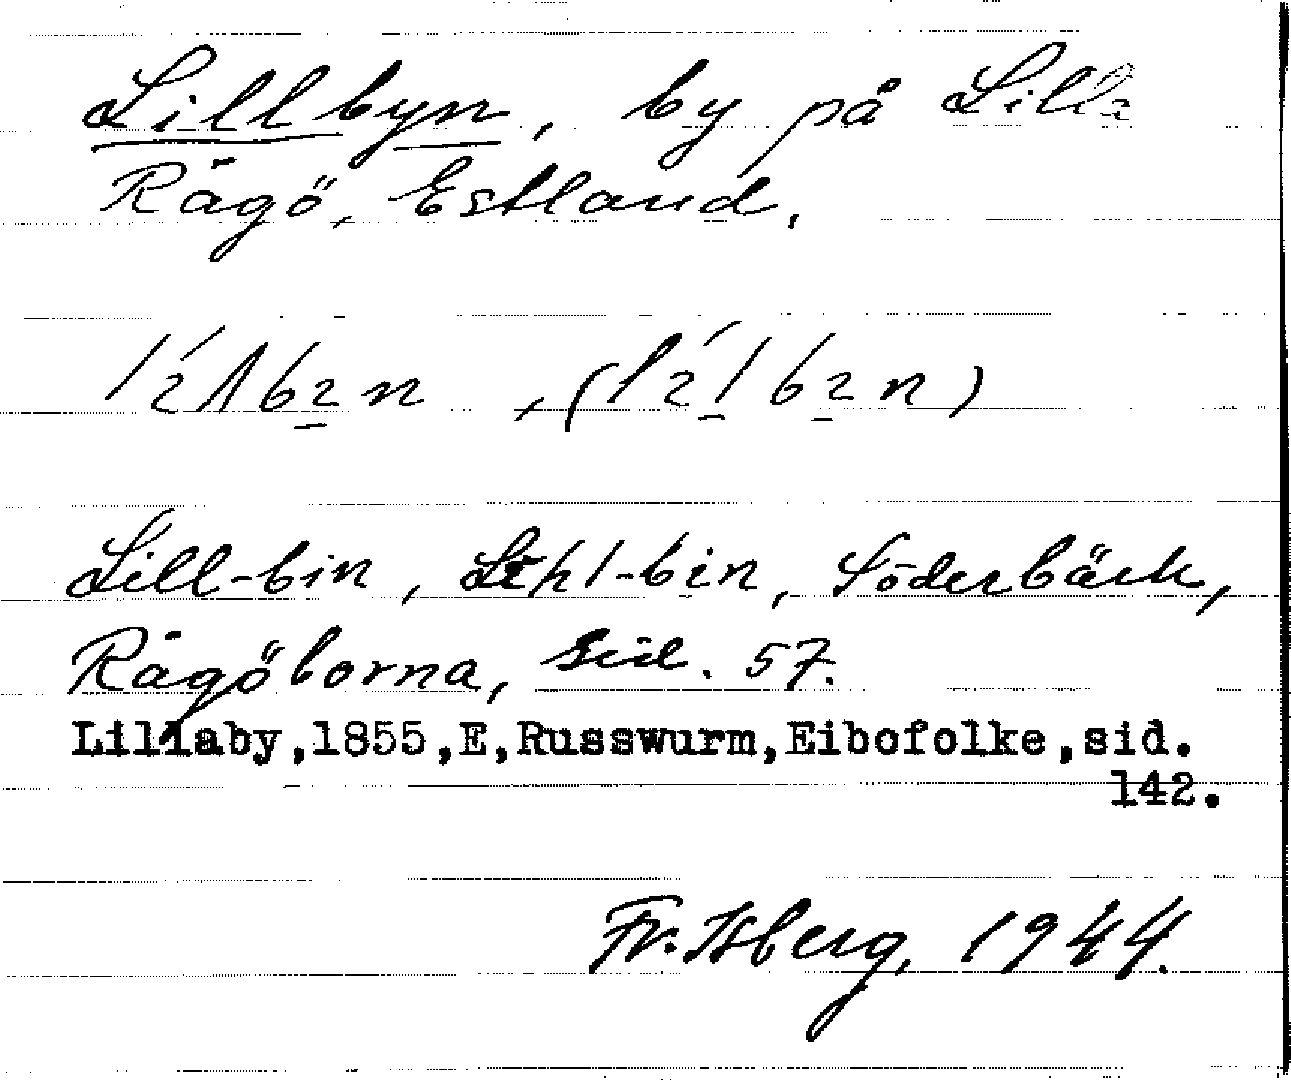 Lillbyn, by på Lilla
Rågö, Estland.
Lill-bin, Lihl-bin, Söderbäck,
Rågöborna, sid. 57.
Lillaby,1855,E,Russwurm,Eibofolke,sid.
142.
Fr. Isberg, 1944.